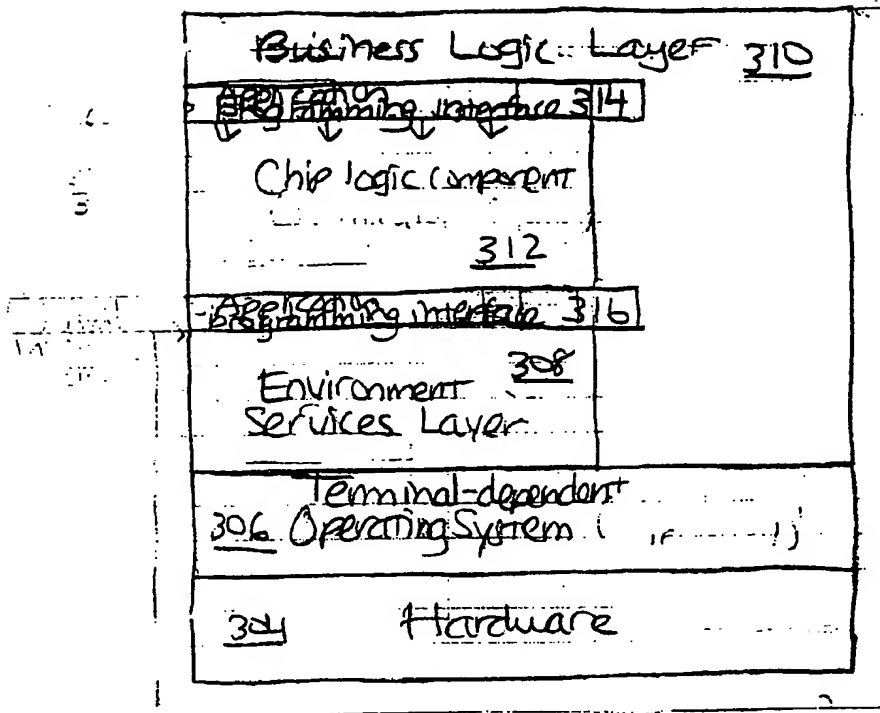 Business Logic Layer 310
Application
Programming interface 314
Chip logic component
312
Application
programming interface 316
308
Environment
Services Layer
Terminal-dependent
306 Operating System ( if )
304 Hardware